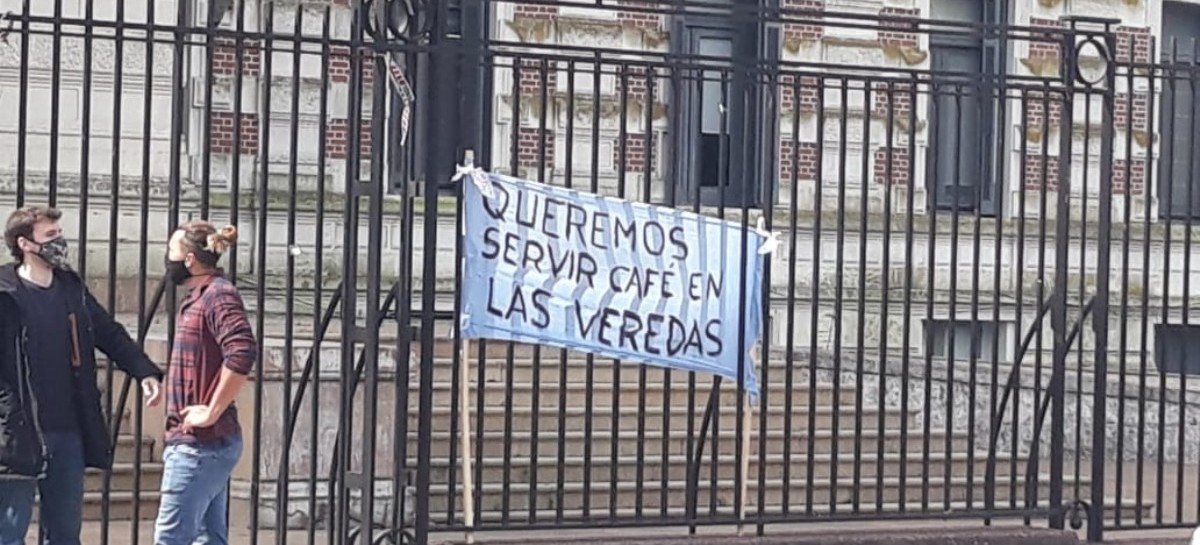 QUEREMOS
SERVIR CAFÉ EN
LAS VEREDAS